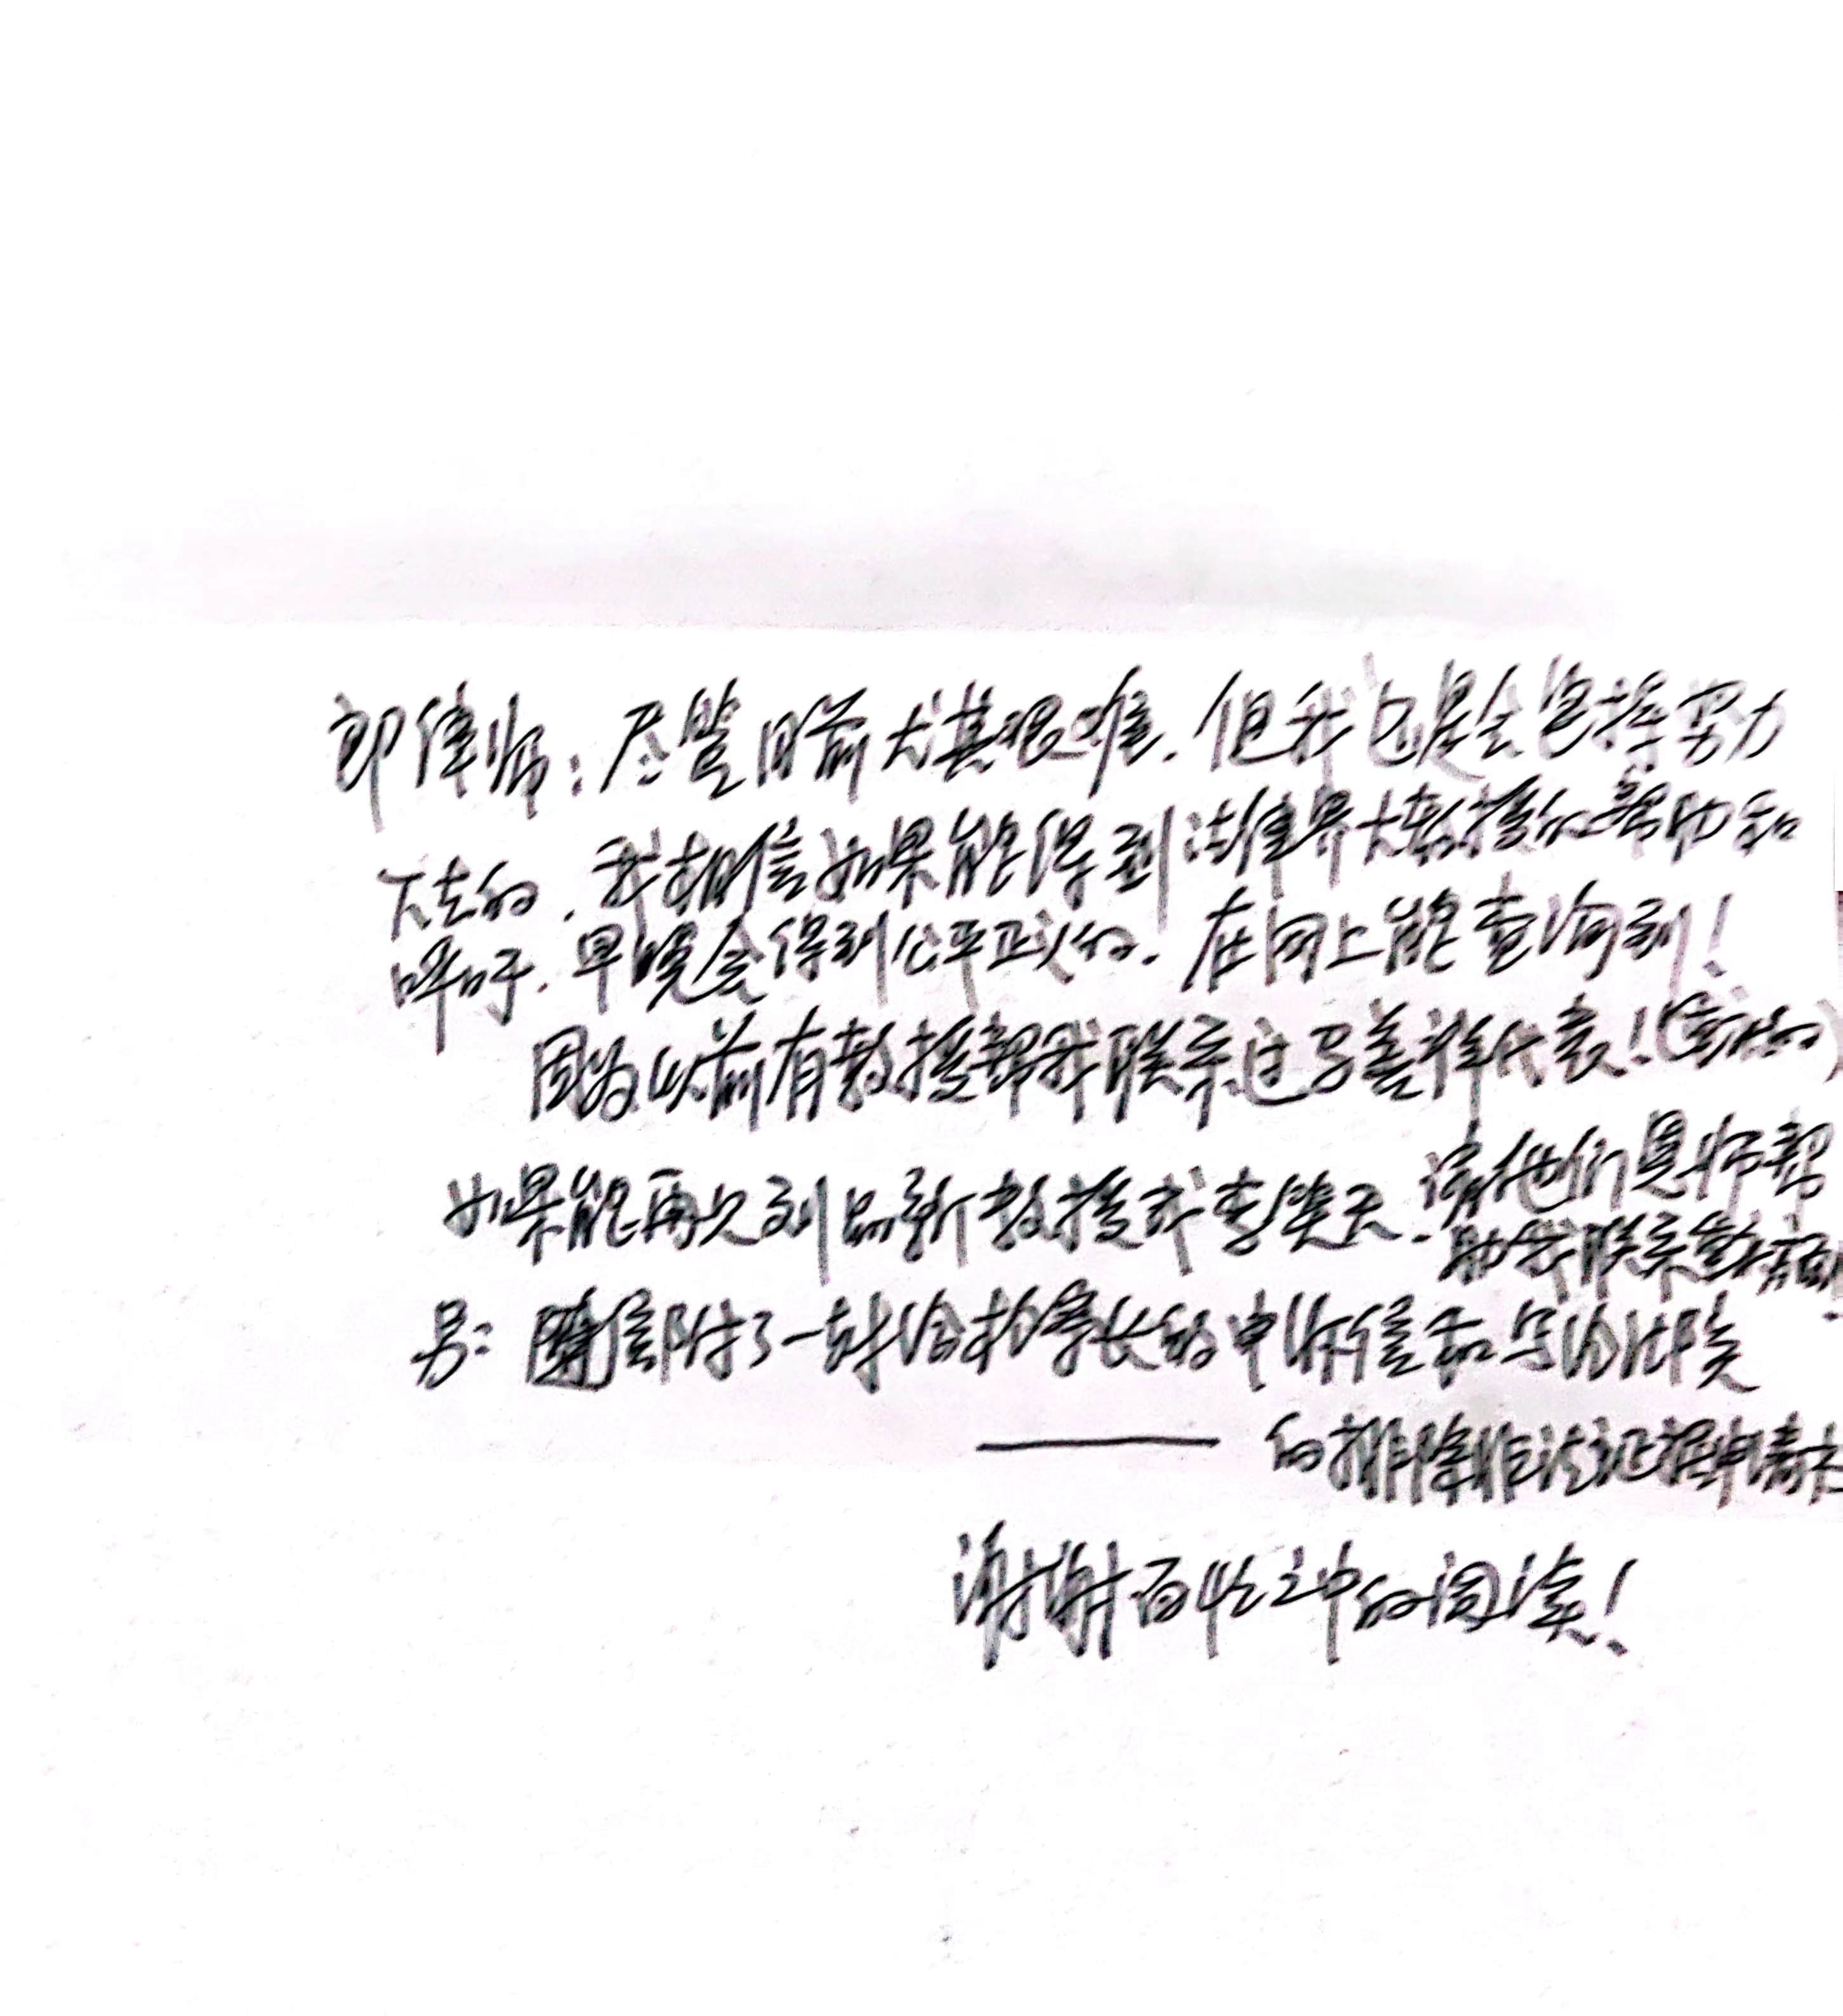 郎律师：尽管目前尤其艰难．但我也是会坚持努力
下去的．我相信如果能得到法律界大教授的帮助和
呼吁．早晚会得到公平正义的．在网上能查询到！
因为以前有教授帮我联系过马善祥代表！
如果能再次到 教授或李 天．请他们恩师帮
助我联系
另：随信附了一封给 长的申诉信和写给
的排除非法证据申请书
谢谢百忙之中的阅读！